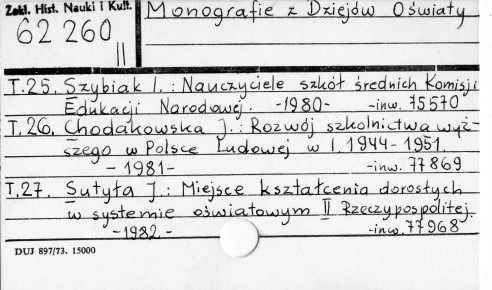 Zakł. Hist. Nauki i Kult.
62 260
II
Monografie z Dziejów Oświaty
T.25. Szybiak I.: Nauczyciele szkół średnich Komisji
Edukacji Narodowej. -1980- -inw. 75570
T.26. Chodakowska J.: Rozwój szkolnictwa wyż-
szego w Polsce Ludowej w l. 1944-1951.
-1981- -inw. 77869
T.27. Sutyła J.: Miejsce kształcenia dorosłych
w systemie oświatowym II Rzeczypospolitej.
-1982- -inw. 77968
DUJ 897/73. 15000